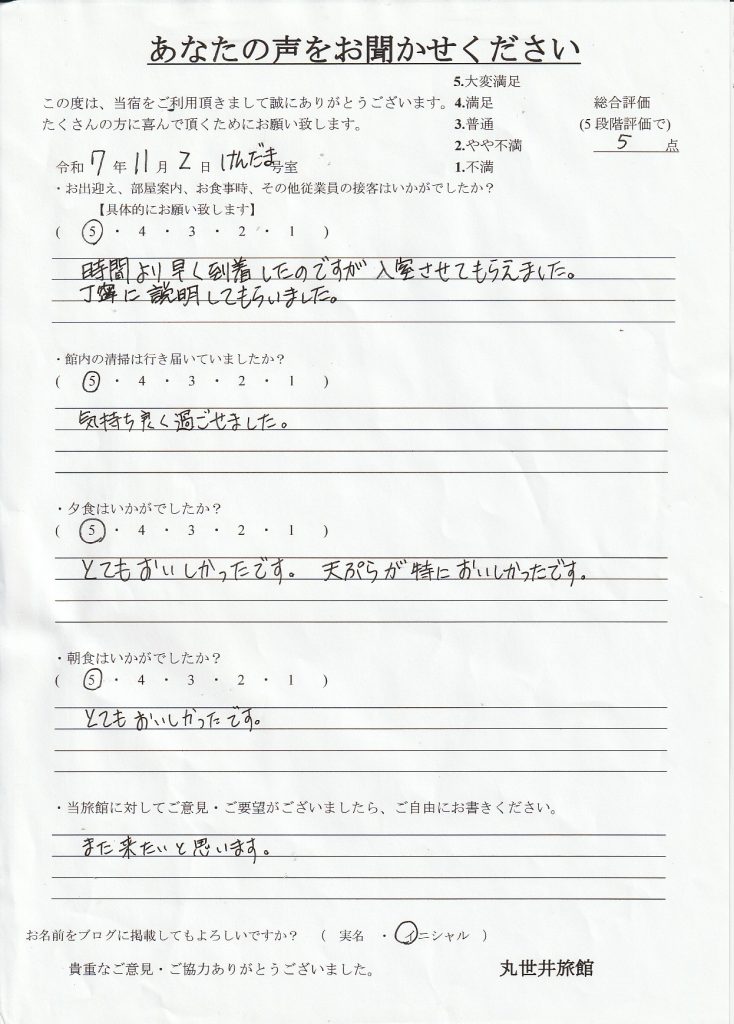 あなたの声をお聞かせください
5.大変満足
この度は、当宿をご利用頂きまして誠にありがとうございます。 4.満足 総合評価
たくさんの方に喜んで頂くためにお願い致します。 3.普通 (5段階評価で)
2.やや不満 5 点
令和 7 年 11 月 2 日 けんだま 号室 1.不満
・お出迎え、部屋案内、お食事時、その他従業員の接客はいかがでしたか？
【具体的にお願い致します】
( 5 ・ 4 ・ 3 ・ 2 ・ 1 )
時間より早く到着したのですが入室させてもらえました。
丁寧に説明してもらいました。
・館内の清掃は行き届いていましたか？
( 5 ・ 4 ・ 3 ・ 2 ・ 1 )
気持ち良く過ごせました。
・夕食はいかがでしたか？
( 5 ・ 4 ・ 3 ・ 2 ・ 1 )
とてもおいしかったです。 天ぷらが特においしかったです。
・朝食はいかがでしたか？
( 5 ・ 4 ・ 3 ・ 2 ・ 1 )
とてもおいしかったです。
・当旅館に対してご意見・ご要望がございましたら、ご自由にお書きください。
また来たいと思います。
お名前をブログに掲載してもよろしいですか？ ( 実名 ・ イニシャル )
貴重なご意見・ご協力ありがとうございました。 丸世井旅館